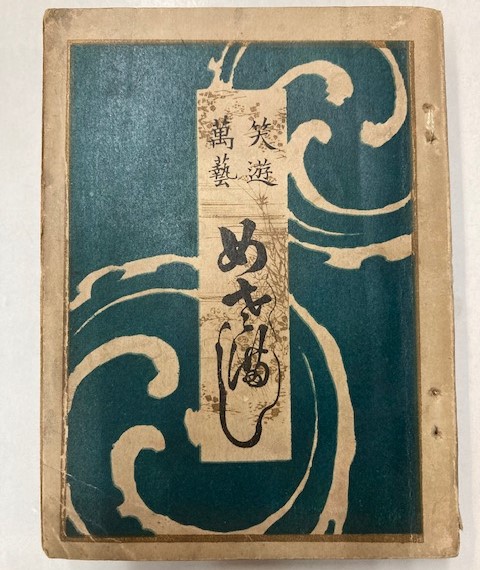 笑遊
萬藝
めさ満し